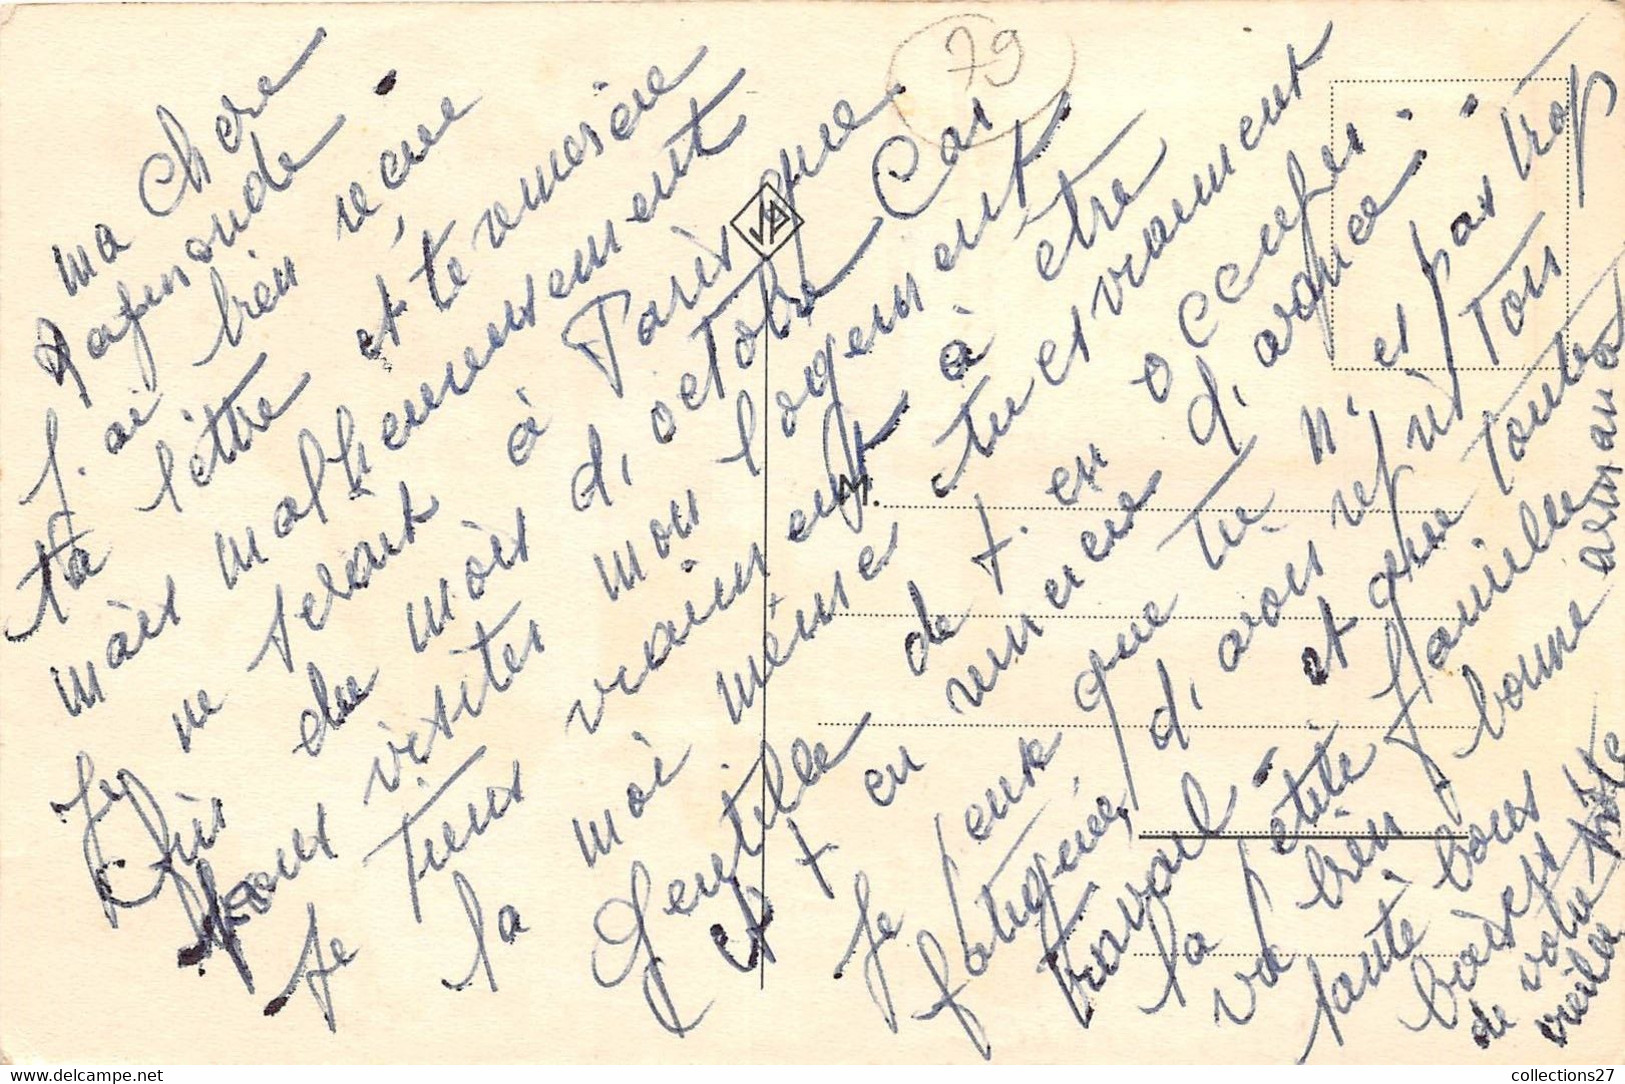 79
ma Chere
Raymonde
J. ai bien réçue
ta lèttre et te remercie
mais malheureusement
Je ne serait à Paris que
du mois d'octobre Car
pour visiter mon logement
Je tiens vraiment à être
la moi méme tu es vraiment
Gentille de t. en occuper.
et t en remercie d'avance.
Je peux que tu n'es pas trop
fatiguée, d'avoir repris ton
travail. et que toute
la petite famille
va bien bonne
santé bons
baisers
de votre
vieille
M.
collections27